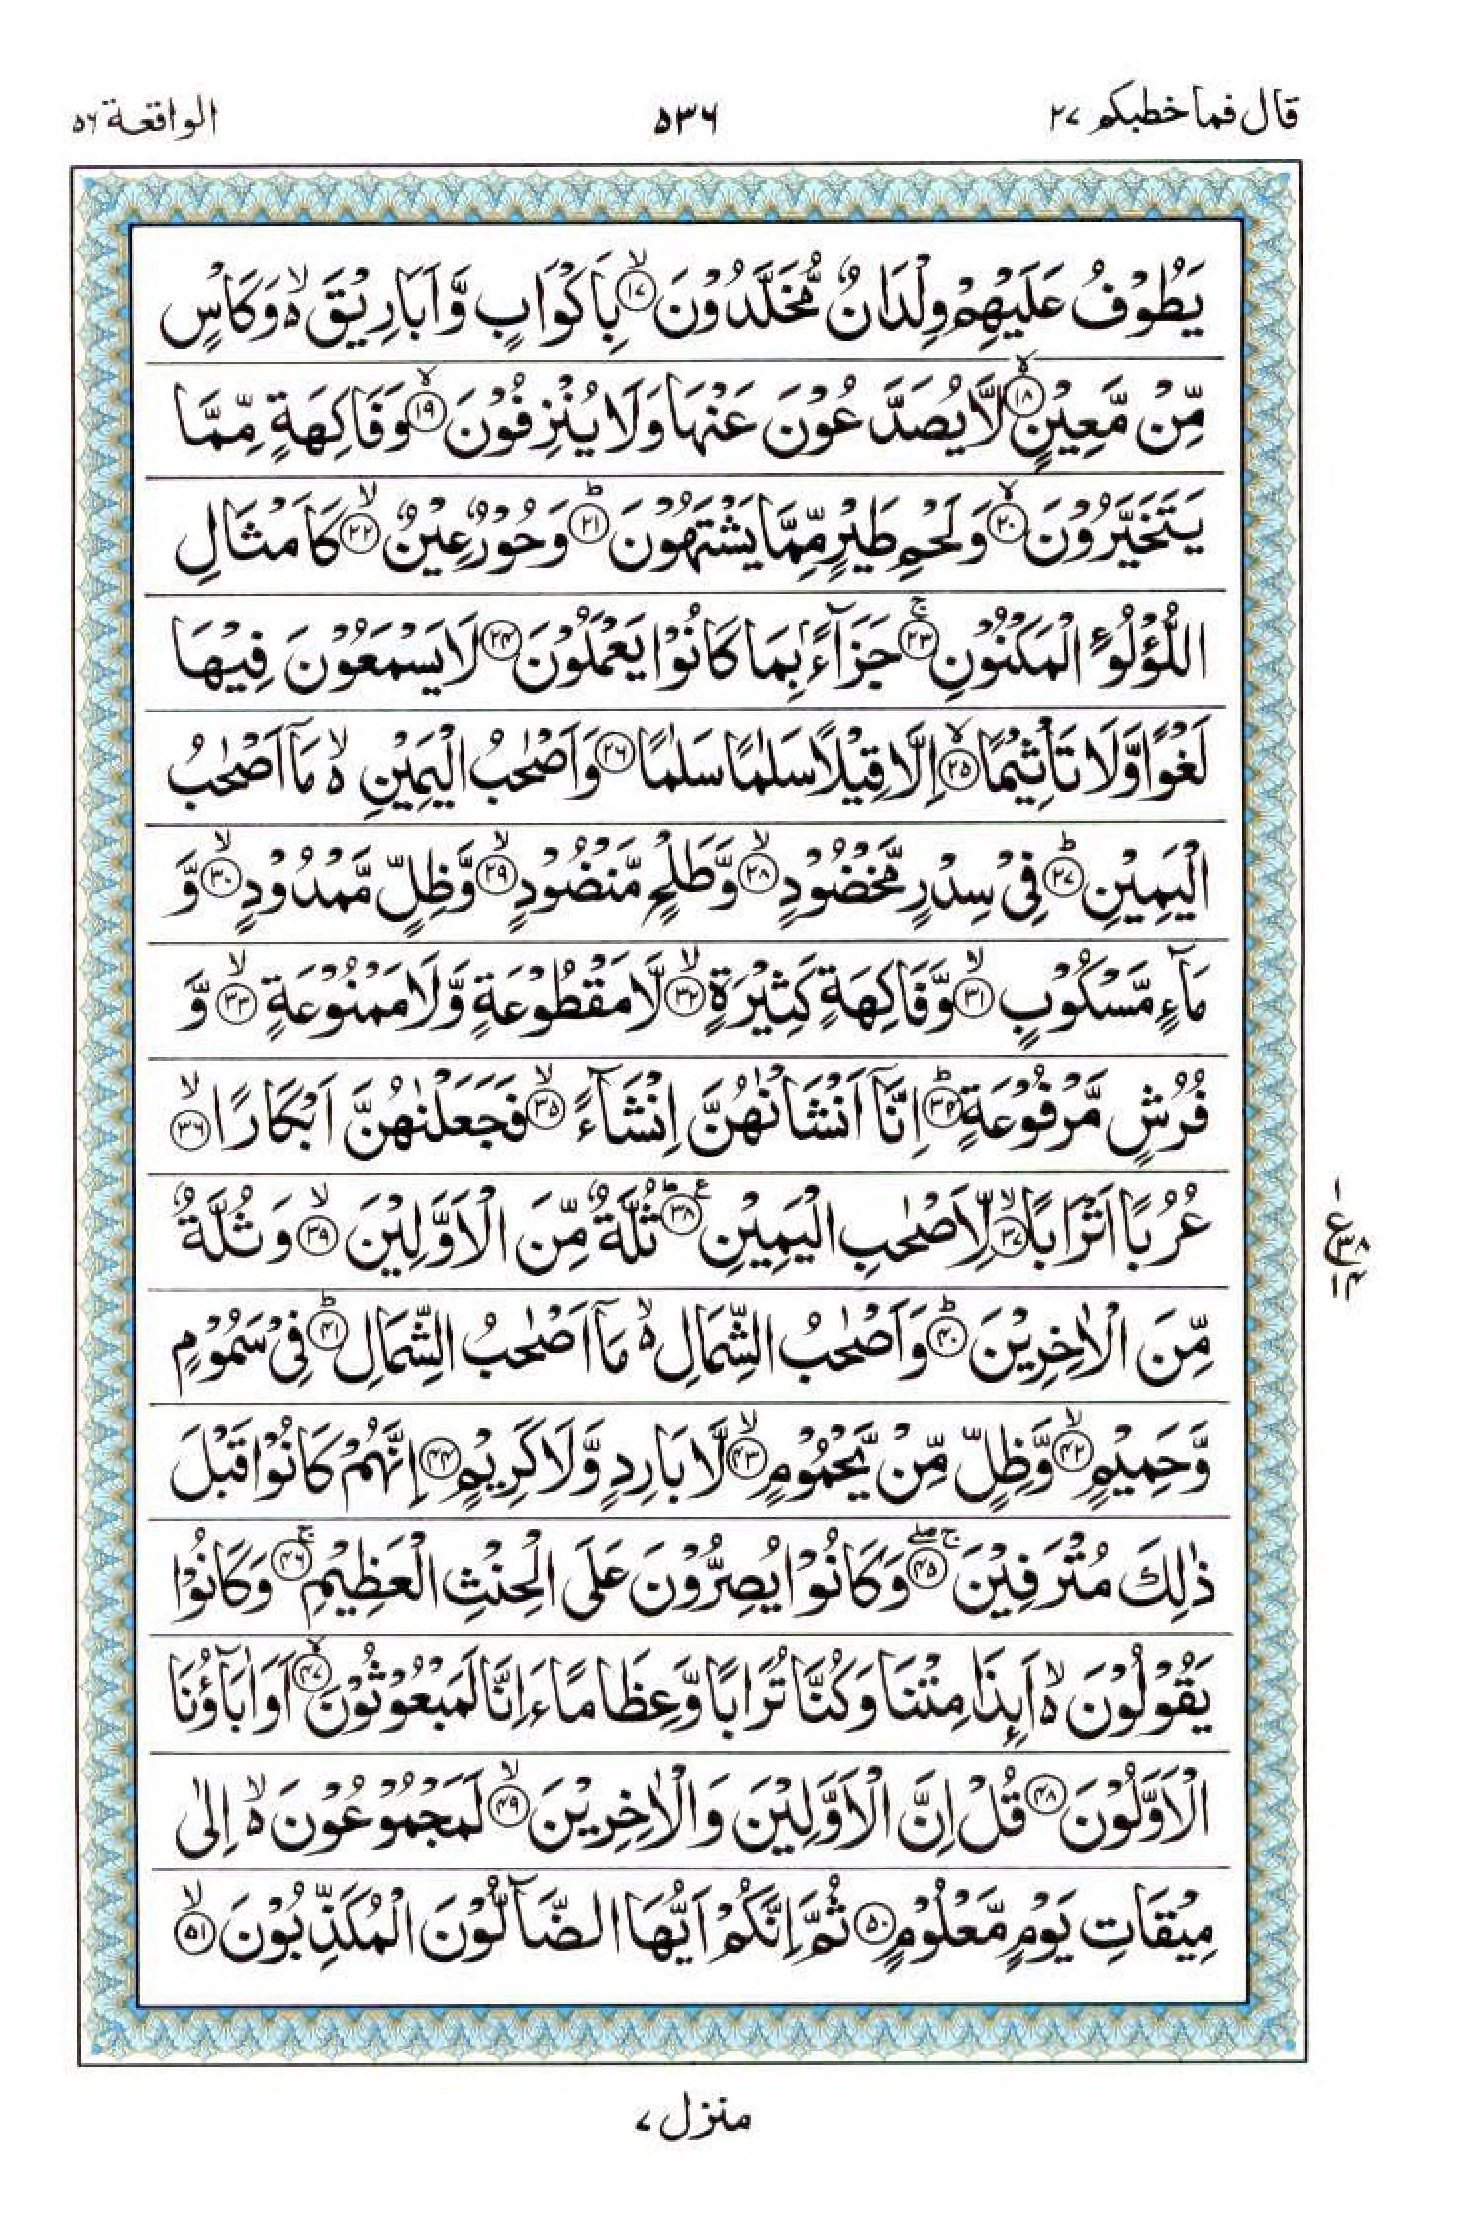 قال فما خطبكم ٢٧
٥٣٦
الواقعة ٥٦
يَطُوْفُ عَلَيْهِمْ وِلْدَانٌ مُّخَلَّدُوْنَ ۙ﴿۱۷﴾ بِاَكْوَابٍ وَّاَبَارِيْقَ ۙ۬ وَكَاْسٍ
مِّنْ مَّعِيْنٍ ۙ﴿۱۸﴾ لَّا يُصَدَّعُوْنَ عَنْهَا وَلَا يُنْزِفُوْنَ ۙ﴿۱۹﴾ وَفَاكِهَةٍ مِّمَّا
يَتَخَيَّرُوْنَ ۙ﴿۲۰﴾ وَلَحْمِ طَيْرٍ مِّمَّا يَشْتَهُوْنَ ؕ﴿۲۱﴾ وَحُوْرٌ عِيْنٌ ۙ﴿۲۲﴾ كَاَمْثَالِ
اللُّؤْلُوٴِ الْمَكْنُوْنِ ۚ﴿۲۳﴾ جَزَآءًۢ بِمَا كَانُوْا يَعْمَلُوْنَ ﴿۲۴﴾ لَا يَسْمَعُوْنَ فِيْهَا
لَغْوًا وَّلَا تَاْثِيْمًا ۙ﴿۲۵﴾ اِلَّا قِيْلًا سَلٰمًا سَلٰمًا ﴿۲۶﴾ وَاَصْحٰبُ الْيَمِيْنِ ۙ۬ مَاۤ اَصْحٰبُ
الْيَمِيْنِ ؕ﴿۲۷﴾ فِيْ سِدْرٍ مَّخْضُوْدٍ ۙ﴿۲۸﴾ وَّطَلْحٍ مَّنْضُوْدٍ ۙ﴿۲۹﴾ وَّظِلٍّ مَّمْدُوْدٍ ۙ﴿۳۰﴾ وَّ
مَآءٍ مَّسْكُوْبٍ ۙ﴿۳۱﴾ وَّفَاكِهَةٍ كَثِيْرَةٍ ۙ﴿۳۲﴾ لَّا مَقْطُوْعَةٍ وَّلَا مَمْنُوْعَةٍ ۙ﴿۳۳﴾ وَّ
فُرُشٍ مَّرْفُوْعَةٍ ؕ﴿۳۴﴾ اِنَّاۤ اَنْشَاْنٰهُنَّ اِنْشَآءً ۙ﴿۳۵﴾ فَجَعَلْنٰهُنَّ اَبْكَارًا ۙ﴿۳۶﴾
عُرُبًا اَتْرَابًا ۙ﴿۳۷﴾ لِّاَصْحٰبِ الْيَمِيْنِ ؕ۠﴿۳۸﴾ ثُلَّةٌ مِّنَ الْاَوَّلِيْنَ ۙ﴿۳۹﴾ وَثُلَّةٌ
مِّنَ الْاٰخِرِيْنَ ؕ﴿۴۰﴾ وَاَصْحٰبُ الشِّمَالِ ۙ۬ مَاۤ اَصْحٰبُ الشِّمَالِ ؕ﴿۴۱﴾ فِيْ سَمُوْمٍ
وَّحَمِيْمٍ ۙ﴿۴۲﴾ وَّظِلٍّ مِّنْ يَّحْمُوْمٍ ۙ﴿۴۳﴾ لَّا بَارِدٍ وَّلَا كَرِيْمٍ ﴿۴۴﴾ اِنَّهُمْ كَانُوْا قَبْلَ
ذٰلِكَ مُتْرَفِيْنَ ۚۖ﴿۴۵﴾ وَكَانُوْا يُصِرُّوْنَ عَلَى الْحِنْثِ الْعَظِيْمِ ۚ﴿۴۶﴾ وَكَانُوْا
يَقُوْلُوْنَ ۙ۬ اَىِٕذَا مِتْنَا وَكُنَّا تُرَابًا وَّعِظَامًا ءَاِنَّا لَمَبْعُوْثُوْنَ ۙ﴿۴۷﴾ اَوَاٰبَآؤُنَا
الْاَوَّلُوْنَ ﴿۴۸﴾ قُلْ اِنَّ الْاَوَّلِيْنَ وَالْاٰخِرِيْنَ ۙ﴿۴۹﴾ لَمَجْمُوْعُوْنَ ۙ۬ اِلٰى
مِيْقَاتِ يَوْمٍ مَّعْلُوْمٍ ﴿۵۰﴾ ثُمَّ اِنَّكُمْ اَيُّهَا الضَّآلُّوْنَ الْمُكَذِّبُوْنَ ۙ﴿۵۱﴾
١
ع ٣٨
١٤
منزل ٧